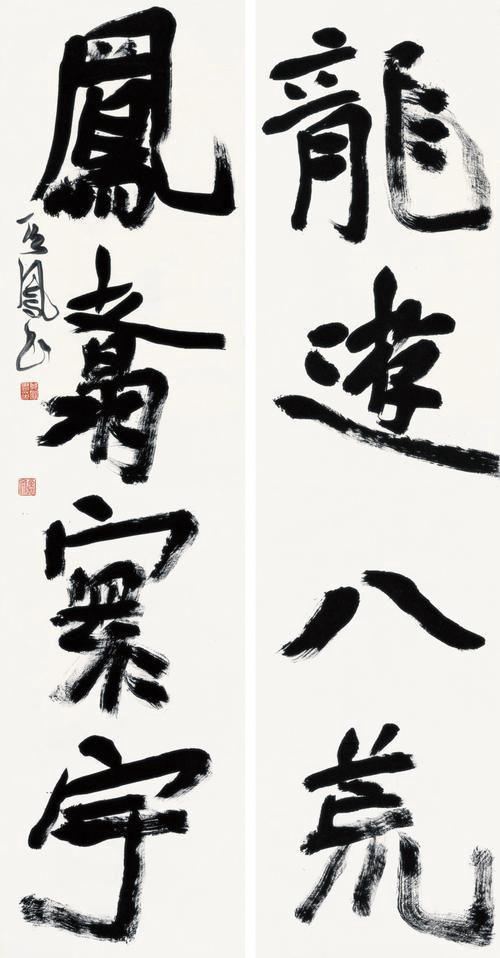 龍遊八荒
鳳翥寰宇